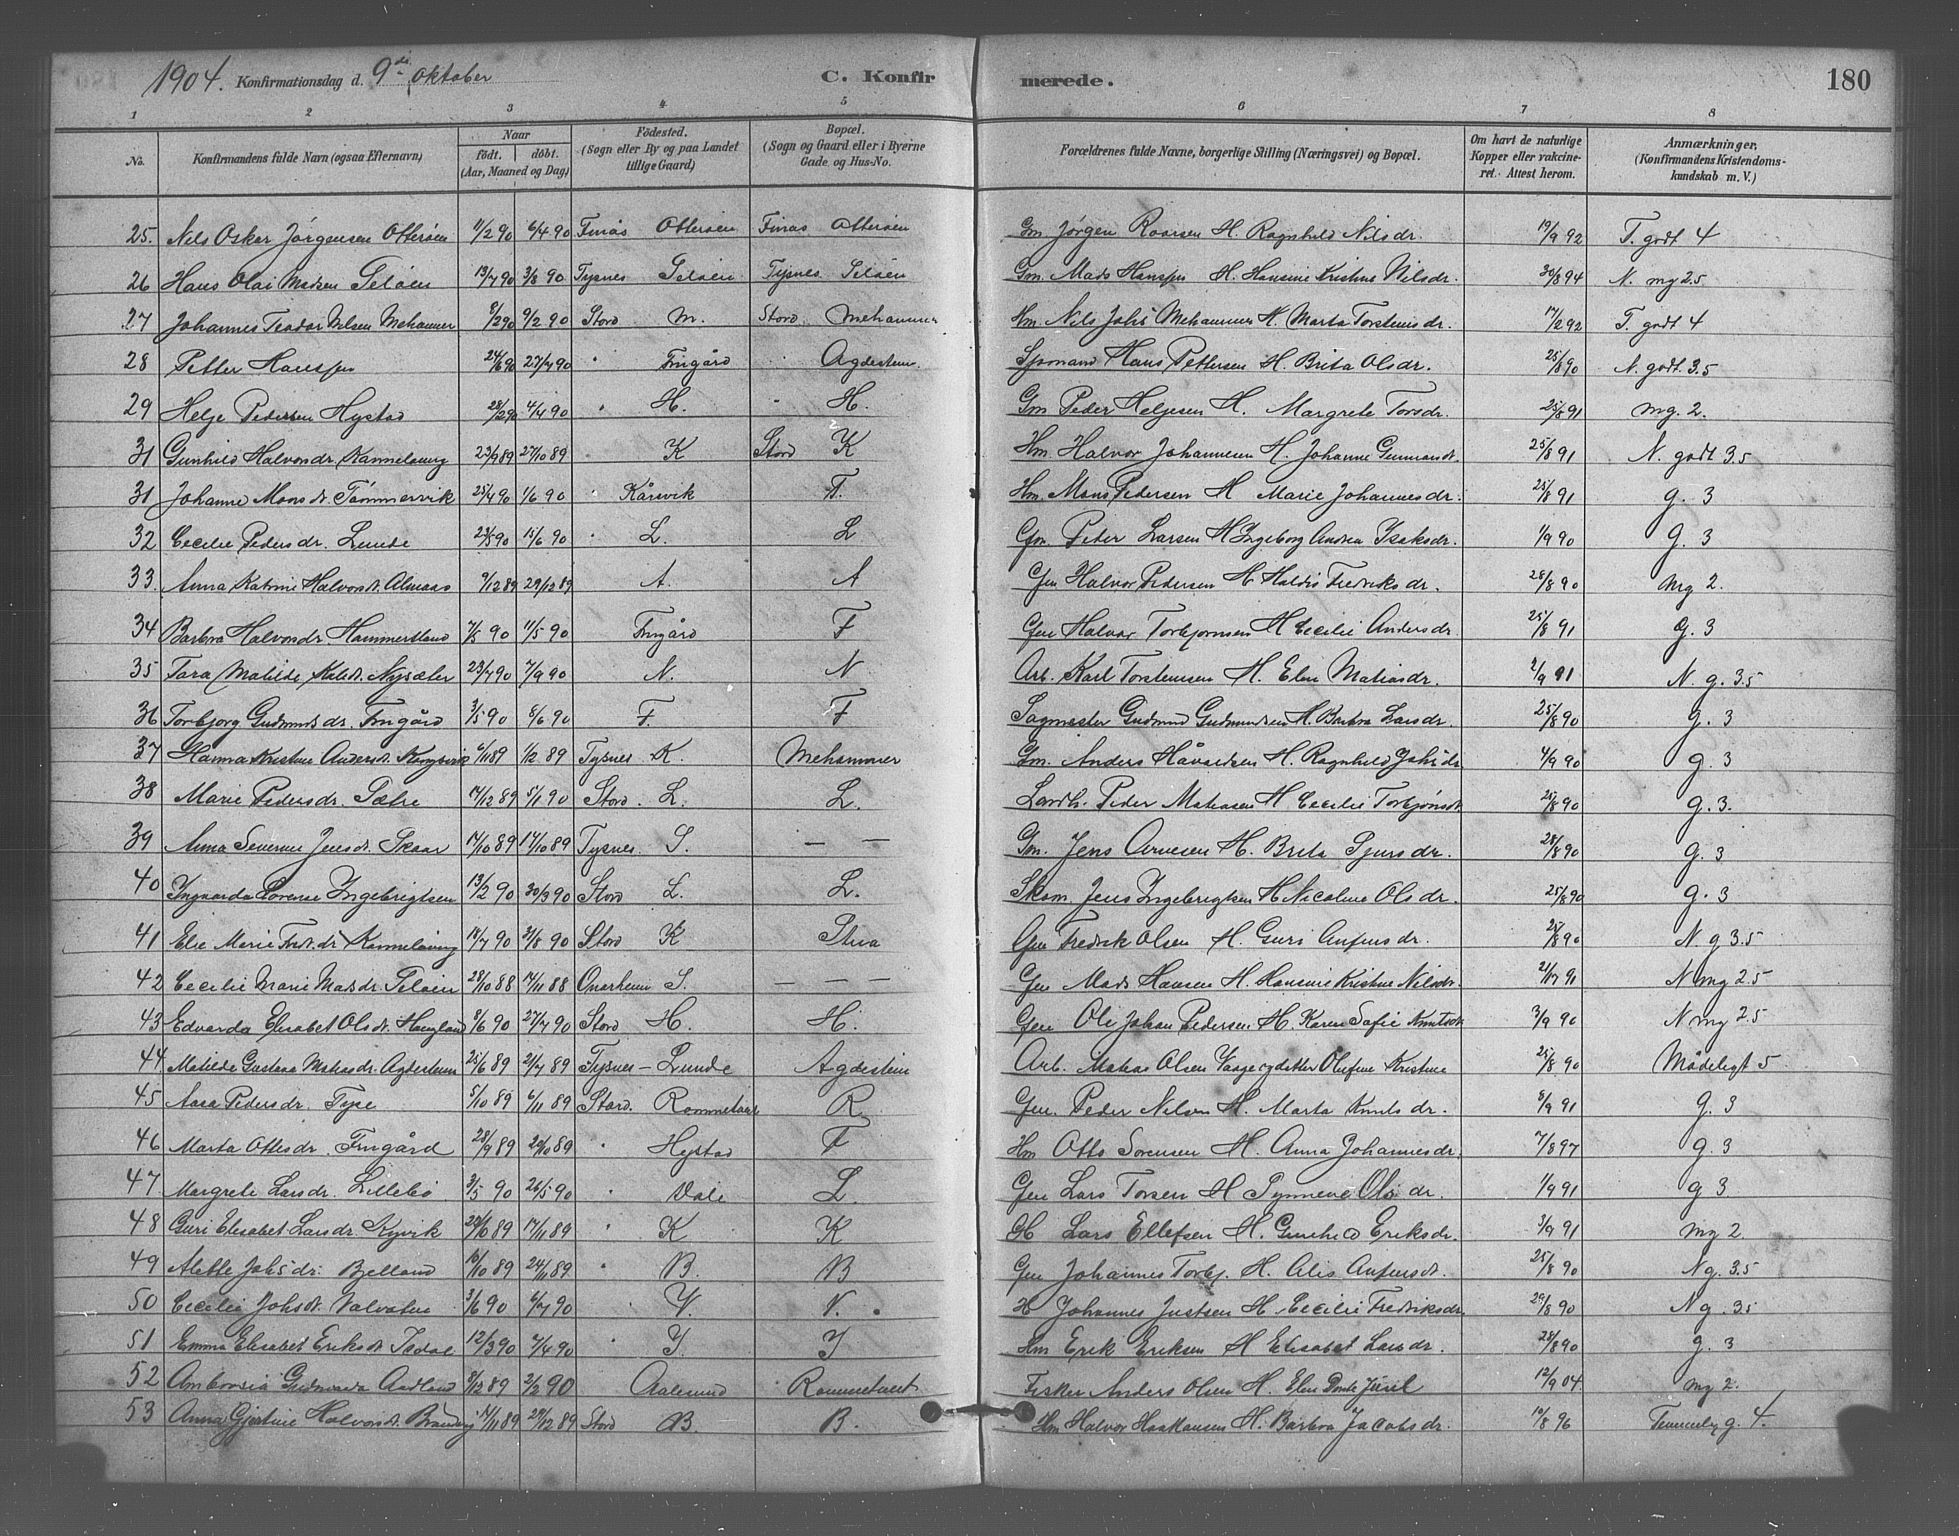 1904. Konfirmationsdag d. 9de oktober C. Konfir merede. 180
1 2 3 4 5 6 7 8
No. Konfirmandens fulde Navn (ogsaa Efternavn) Naar födt. döbt. (Aar, Maaned og Dag) Födested. (Sogn eller By og paa Landet tillige Gaard.) Bopæl. (Sogn og Gaard eller i Byerne Gade og Hus-No. Forældrenes fulde Navne, borgerlige Stilling (Næringsvei) og Bopæl. Om havt de naturlige Kopper eller vakcineret. Attest herom. Anmærkninger. (Konfirmandens Kristendomskundskab m. V.)
25. Nils Oskar Jørgensen Otterøen 11/2 90 6/4 90 Finås Otterøen Finås Otterøen Gm Jørgen Roarsen H. Ragnhild Nilsdr. 19/9 92 T. godt 4
26 Hans Olai Madsen Seløen 13/7 90 3/8 90 Tysnes Seløen Tysnes Seløen Gm. Mads Hanssen H. Hansine Kristine Nilsdr. 30/8 94 N. mg 2.5
27 Johannes Teodor Nilsen Mehammer 8/2 90 9/2 90 Stord M. Stord Mehammer Hm. Nils Johs Mehammer H. Marta Torsteinsdr. 17/2 92 T. godt 4
28 Petter Hanssen 24/6 90 27/7 90 " Frugård Agdestein Hans Pettersen H. Brita Olsdr. 25/8 90 N. godt 3.5
29 Helje Pedersen Hystad 28/2 90 4/4 90 " H. " H. Gm Peder Heljesen H. Margrete Torsdr. 25/8 91 mg. 2.
31 Gunhild Halvorsdr. Kannelønning 23/9 89 27/10 89 K Stord K Hm. Halvor Johannesen H. Johanne Gunnarsdt. 25/8 91 N. godt 3.5
31 Johanne Monsdt. Tömmervik 25/4 90 1/6 90 " Kårevik T. Hm. Mons Pedersen H Marie Johannesdr. 25/8 91 g. 3
32 Cecilie Pedersdr. Lunde 23/5 90 15/6 90 " L. L Gm. Peder Larsen H Ingeborg Andrea Isaksdr. 1/9 90 g. 3
33. Anna Katrine Halvorsdt. Almaas 9/12 89 29/12 89 A. A Gm Halvor Pedersen H. Haldis Fredriksdr. 28/8 90 mg 2.
34 Barbra Halvorsdr. Hammersland 7/5 90 11/5 90 Frugård F Gm Halvor Torbjørnsen H Cecilie Andersdr. 25/8 91 g. 3
35 Tora Matilde Karlsdt. Nysæter 23/7 90 7/9 90 N. N Arb. Karl Torsteinsen H. Elen Matiasdr. 2/9 91 N. g. 3.5
36 Torbjørg Gudmundsdr. Frugård 3/5 90 8/6 90 F. F Sagmester Gudmund Gudmundsen H. Barbra Larsdr. 25/8 90 g. 3
37 Hanna Kristine Andersdt. Kongsvik 6/11 89 1/12 89 Tysnes K. Mehammer Gm. Anders Håvardsen H. Ragnhild Johsdr 4/9 90 g. 3
38 Marie Pedersdr. Sætre 14/12 89 5/1 90 Stord. L. L. Landh. Peder Matiasen H Cecilie Torbjønsdt 25/8 90 g. 3.
39 Anna Severine Jensdt. Skaar 14/10 89 14/10 89 Tysnes. S. — — Gm. Jens Arnesen H. Brita Sjursdr. 28/8 90 g. 3
40 Ingvarda Lorense Ingebrigtsen 13/2 90 30/3 90 Stord L. L. Skom. Jens Ingebrigtsen H Nicoline Olsdr. 25/8 90 g. 3
41 Else Marie Fredr.dr Kannelønning 18/7 90 31/8 90 Stord K Gm Fredrik Olsen H. Guri Anfinsdr. 25/8 90 N. g 3.5
42 Cecilie Marie Madsdr. Seløen 28/10 88 14/11 88 Onarheim S. — — — Gm Mads Hansen H. Hansine Kristine Nilsdr. N mg 2.5
43 Edvarda Elisabet Olsdt. Haugland 8/6 90 27/7 90 Stord H. H. Gm Ole Johan Pedersen H. Karen Sofie Knutsdt 3/9 90 N mg 2.5
44 Matilde Gustava Matiasdr. Agdestein 25/6 89 21/7 89 Tysnes — Lunde Agdestein Arb. Matias Olsen Olufine Kristine 25/8 90 Mådeligt 5
45 Aasa Pedersdr. Tyse 5/10 89 6/11 89 Stord. Rommetveit R Gm. Peder Nilsen H. Marta Knutsdr. 8/9 91 g. 3
46 Marta Ottesdr. Frugård 28/9 89 20/10 89 " Hystad F Hm Otto Sørensen H. Anna Johannesdr. 7/8 97 g. 3
47 Margrete Larsdr. Lillebø 3/5 90 26/5 90 " Vale L. Gm Lars Torsen H Synneve Olsdr. 1/9 91 g 3
48 Guri Elisabet Larsdr. Kyvik 20/10 89 17/11 89 " K K H Lars Ellefsen H. Gunhild Eriksdr. 3/9 91 mg 2
49 Alette Johsdr. Bjelland 10/10 89 24/11 89 " B. B Gm Johannes Torbj. H. Alis Anfinsdt. 25/8 90 N g. 3.5
50 Cecilie Johsdt. Valvatne 3/6 90 6/7 90 V. V. H Johannes Justsen H. Cecilie Fredriksdr 29/8 90 N g. 3.5
51 Emma Elisabet Eriksdt. Isdal 12/3 90 7/4 90 " I. I Hm Erik Eriksen H Elisabet Larsdr. 28/8 90 g. 3
52 Ambrosia Gudmunda Aadland 8/12 89 2/2 90 Aalesund Rommetveit Fisker Anders Olsen H. Elen Dorte Juul 12/9 04. mg 2.
53 Anna Gjertine Halvorsdt. 11/11 89 29/12 89 Stord B. B. Hm Halvor Haakonsen H. Barbra Jacobsdr. 10/8 96 Temmelig g. 4.